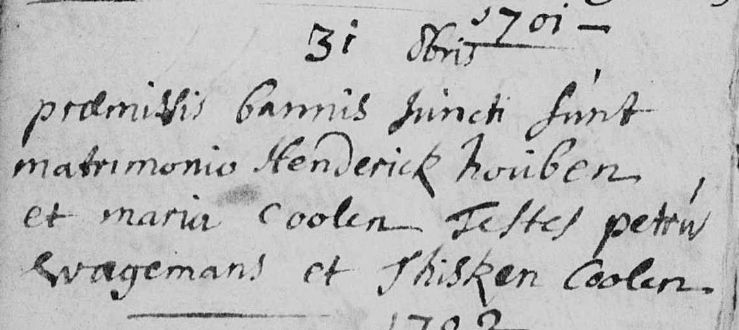 1701 —
31 8bris
præmissis bannis juncti sunt
matrimonio Henderick houben
et maria Coolen Testes petrus
wagemans et Thisken Coolen.
1702